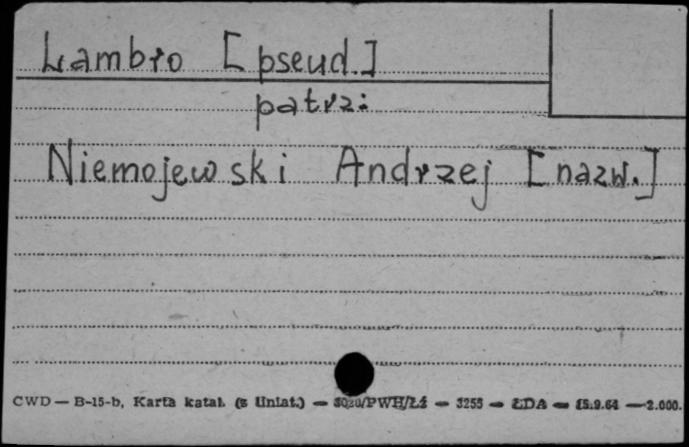 Lambro [pseud.]
patrz:
Niemojewski Andrzej [nazw.]
CWD — B-15-b, Karta katal. (z Uniat.) — 3020/PWH/Łź — 3255 — ŁDA — 15.9.64 — 2.000.